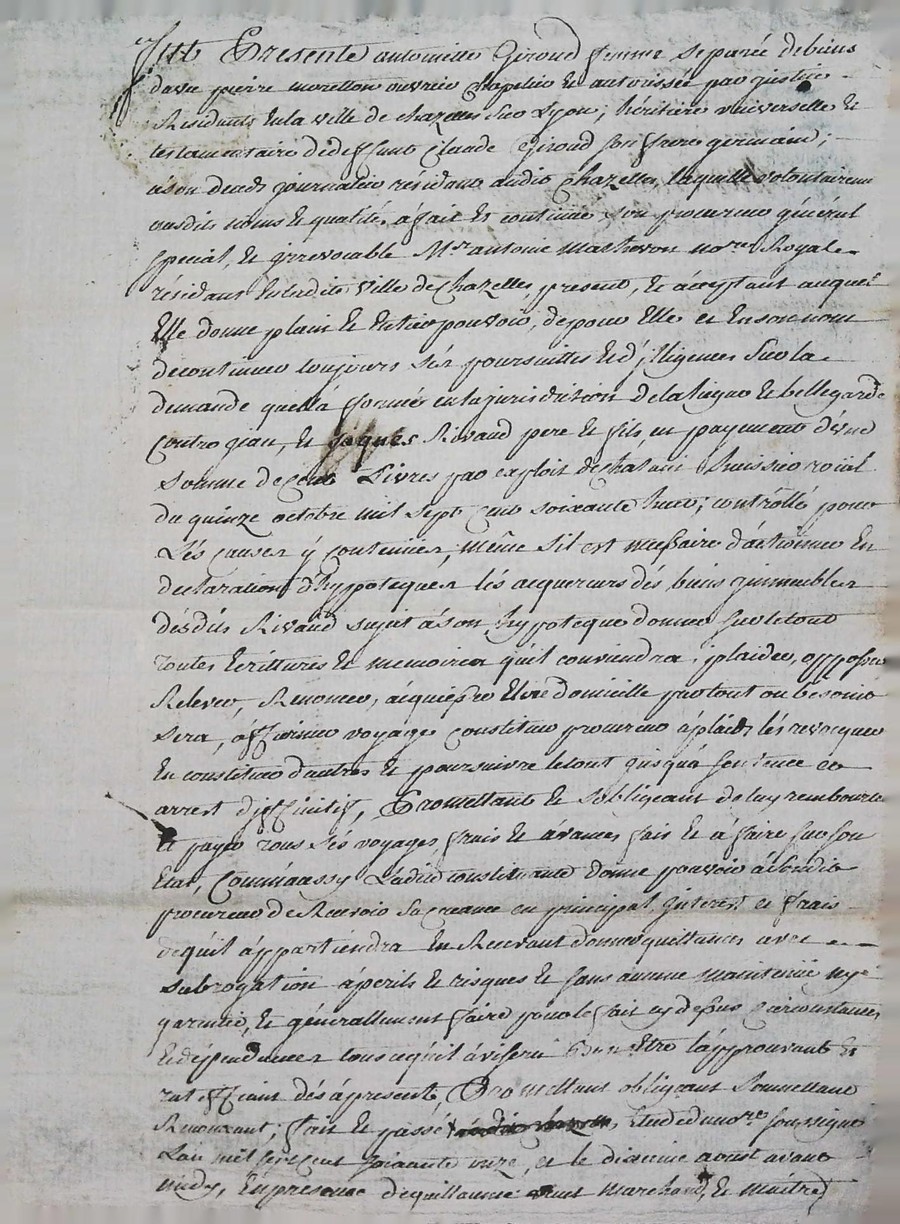 Fut Presente antoinette Giroud femme separée de biens
davec pierre morellon ouvrier Chapelier et autorisée par justice
Residants En la ville de chazelles Sur Lyon; héritiere universelle Et
testamentaire de deffunt Claude Giroud son frere germain;
a son deceds journalier résidant audit Chazelles, laquelle volontairement
susdits noms Et qualités, a fait Et constitué son procureur général
spécial, Et irrevocable Mr antoine Mathevon nore Royal
résidant En ladite Ville de Chazelles, present, Et acceptant auquel
Elle donne plain Et Entier pouvoir, de pour Elle et En son nom
de continuer toujours Sés poursuittes Et diligences Sur la
demande quellá formée en la jurisdiction de lafaigue Et bellegarde
Contre jean, Et jaques Rivaud pere Et fils, en payement d'une
Somme de Cent Livres par exploit de chatain huissier roial
du quinze octobre mil Sept Cent Soixante huit; contrôllé pour
Lés Causes y Contenües, même Sil est nessaire d'actionner En
declaration d'hypoteques lés acquereurs dés biens jmmeubles
désdits Rivaud sujets á son hypoteque donner sur le tout
toutes Ecrittures Et memoires quil conviendra, plaider, opposer
Relever, Renoncer, acquiescer Elire domicille partout ou besoins
Sera, áffirmer voyages Constituer procureur á plaids lés revocquer
En constituer d'autres Et poursuivre le tout jusquá Sentence ou
arrest diffinitif, Promettant Et Sobligeant de luy rembourser
Et payer tous Sés voyages frais Et ávances fait Et á faire Sur son
Etat, Comm'aussy Ladite constituante donne pouvoir á Sondit
procureur de Recevoir Sa creance en principal, jnterest et frais
dequil áppartiendra En Recevant donner quittances avec
Subrogation áperils Et risques Et sans aucune maintenüe ny
garantie, Et générallement faire pour le fait cy dessus Circonstances
Et dépendances tous cequil ávisera Bon Etre láprouvant Et
ratiffiant dés áprésent, Promettant obligeant Soumettant
Renonçant; fait Et passé Etude du nore Soussigné
Lan mil Sept Cent Soixante onze, et le dixieme aoust avant
midy, En presence de guillaume Marchand, Et Maitre